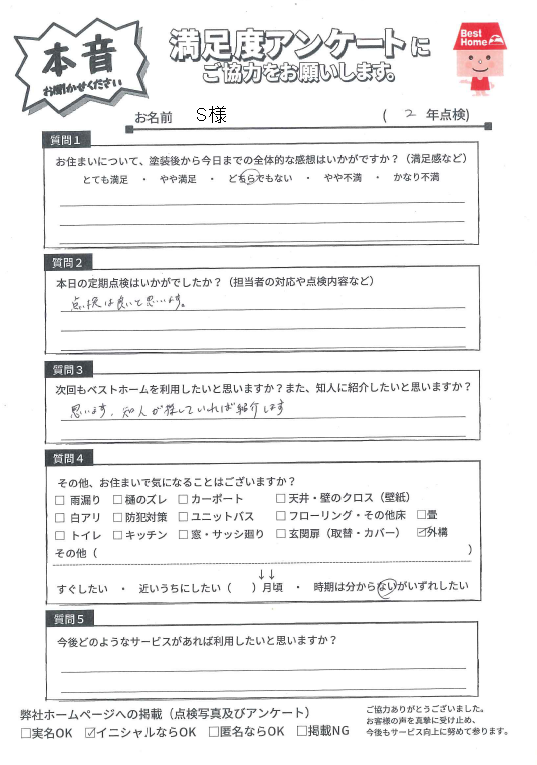 本音
お聞かせください
満足度アンケートに
ご協力をお願いします。
Best
Home
お名前 S様 ( 2 年点検)
質問1
お住まいについて、塗装後から今日までの全体的な感想はいかがですか？（満足感など）
とても満足 ・ やや満足 ・ どちらでもない ・ やや不満 ・ かなり不満
質問2
本日の定期点検はいかがでしたか？（担当者の対応や点検内容など）
点検は良いと思います。
質問3
次回もベストホームを利用したいと思いますか？また、知人に紹介したいと思いますか？
思います、知人が探していれば紹介します
質問4
その他、お住まいで気になることはございますか？
□ 雨漏り □ 樋のズレ □ カーポート □ 天井・壁のクロス（壁紙）
□ 白アリ □ 防犯対策 □ ユニットバス □ フローリング・その他床 □ 畳
□ トイレ □ キッチン □ 窓・サッシ廻り □ 玄関扉（取替・カバー） ☑ 外構
その他（ ）
↓↓
すぐしたい ・ 近いうちにしたい（ ）月頃 ・ 時期は分からないがいずれしたい
質問5
今後どのようなサービスがあれば利用したいと思いますか？
弊社ホームページへの掲載（点検写真及びアンケート）
□実名OK ☑イニシャルならOK □匿名ならOK □掲載NG
ご協力ありがとうございました。
お客様の声を真摯に受け止め、
今後もサービス向上に努めて参ります。